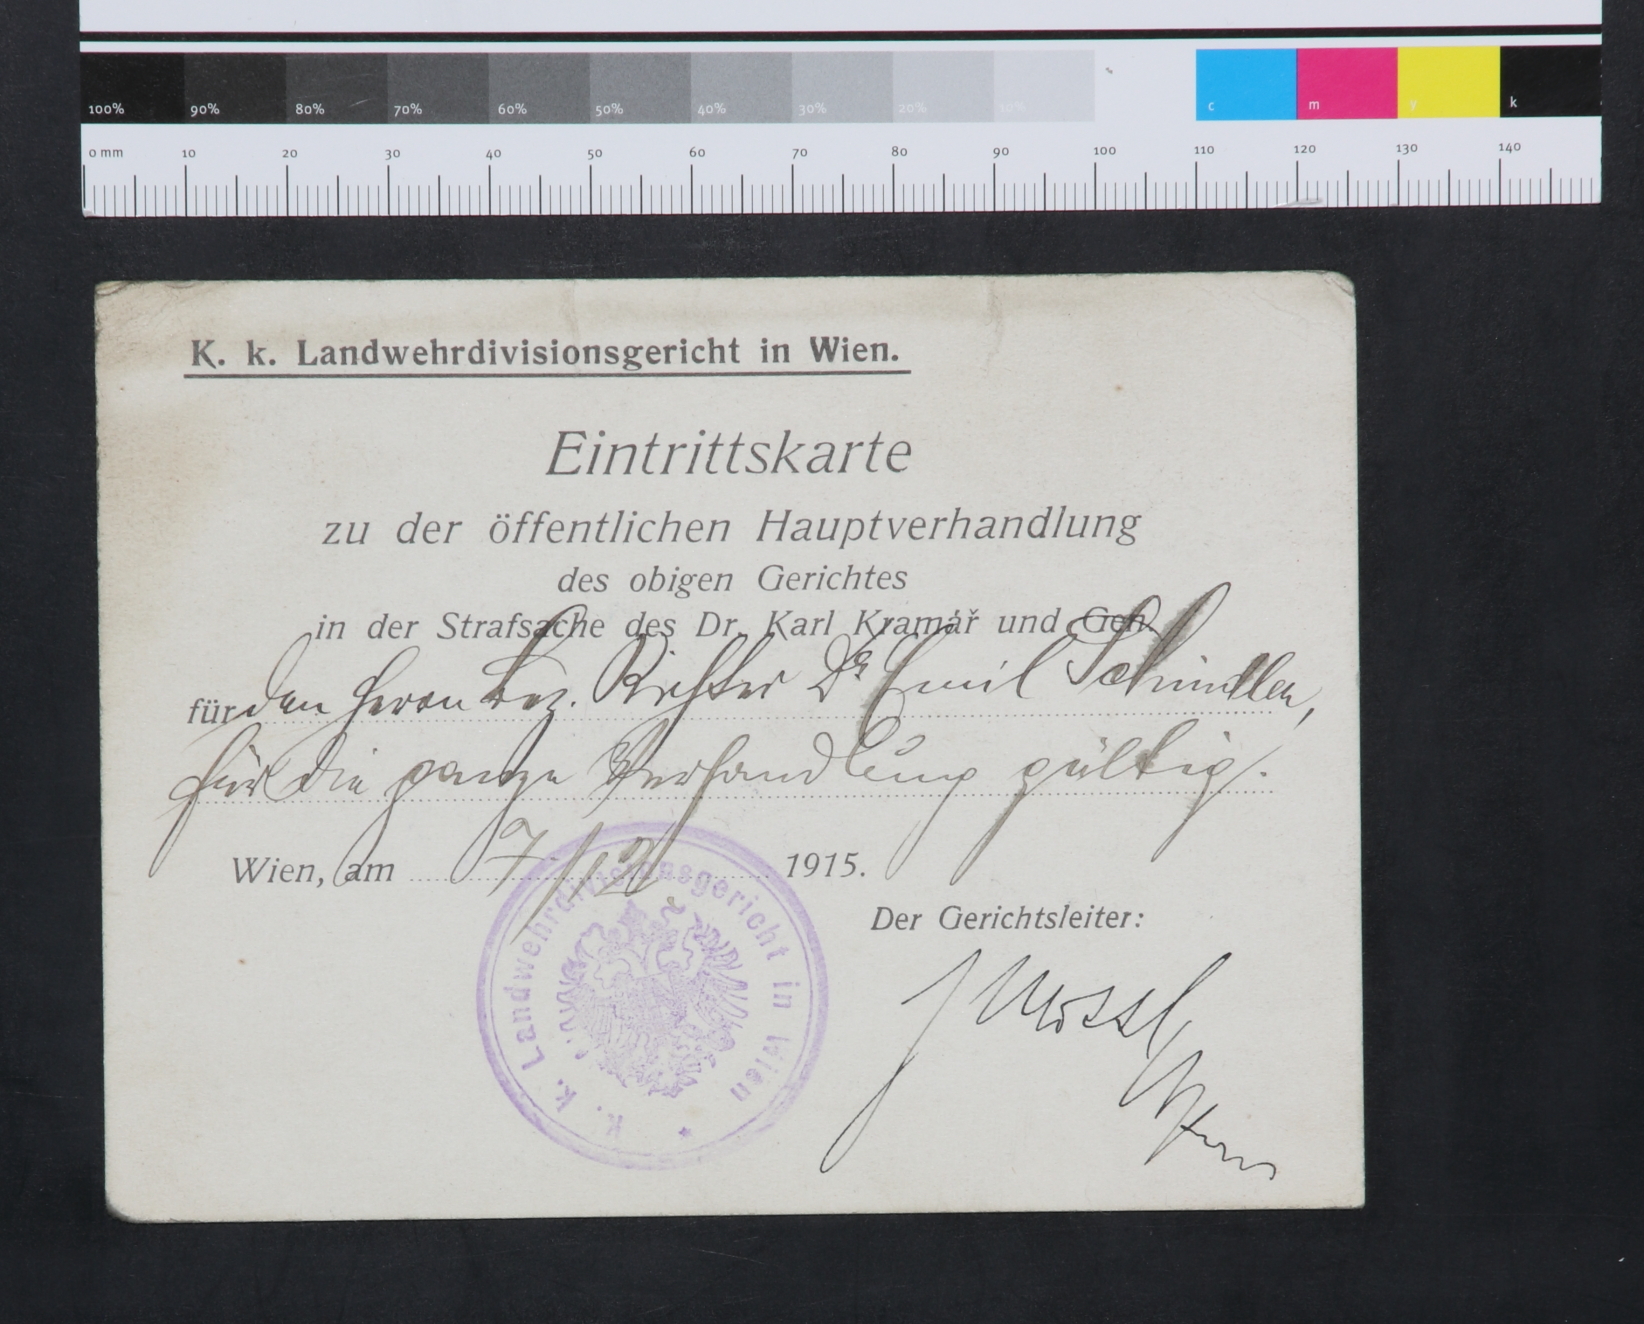 100% 90% 80% 70% 60% 50% 40% 30% 20% 10% c m y k
0 mm 10 20 30 40 50 60 70 80 90 100 110 120 130 140
K. k. Landwehrdivisionsgericht in Wien.
Eintrittskarte
zu der öffentlichen Hauptverhandlung
des obigen Gerichtes
in der Strafsache des Dr. Karl Kramář und Gen.
für den Herrn Bez. Richter Dr Emil Schindler,
für die ganze Verhandlung gültig.
Wien, am 7./12 1915.
Der Gerichtsleiter:
K. k. Landwehrdivisionsgericht in Wien *